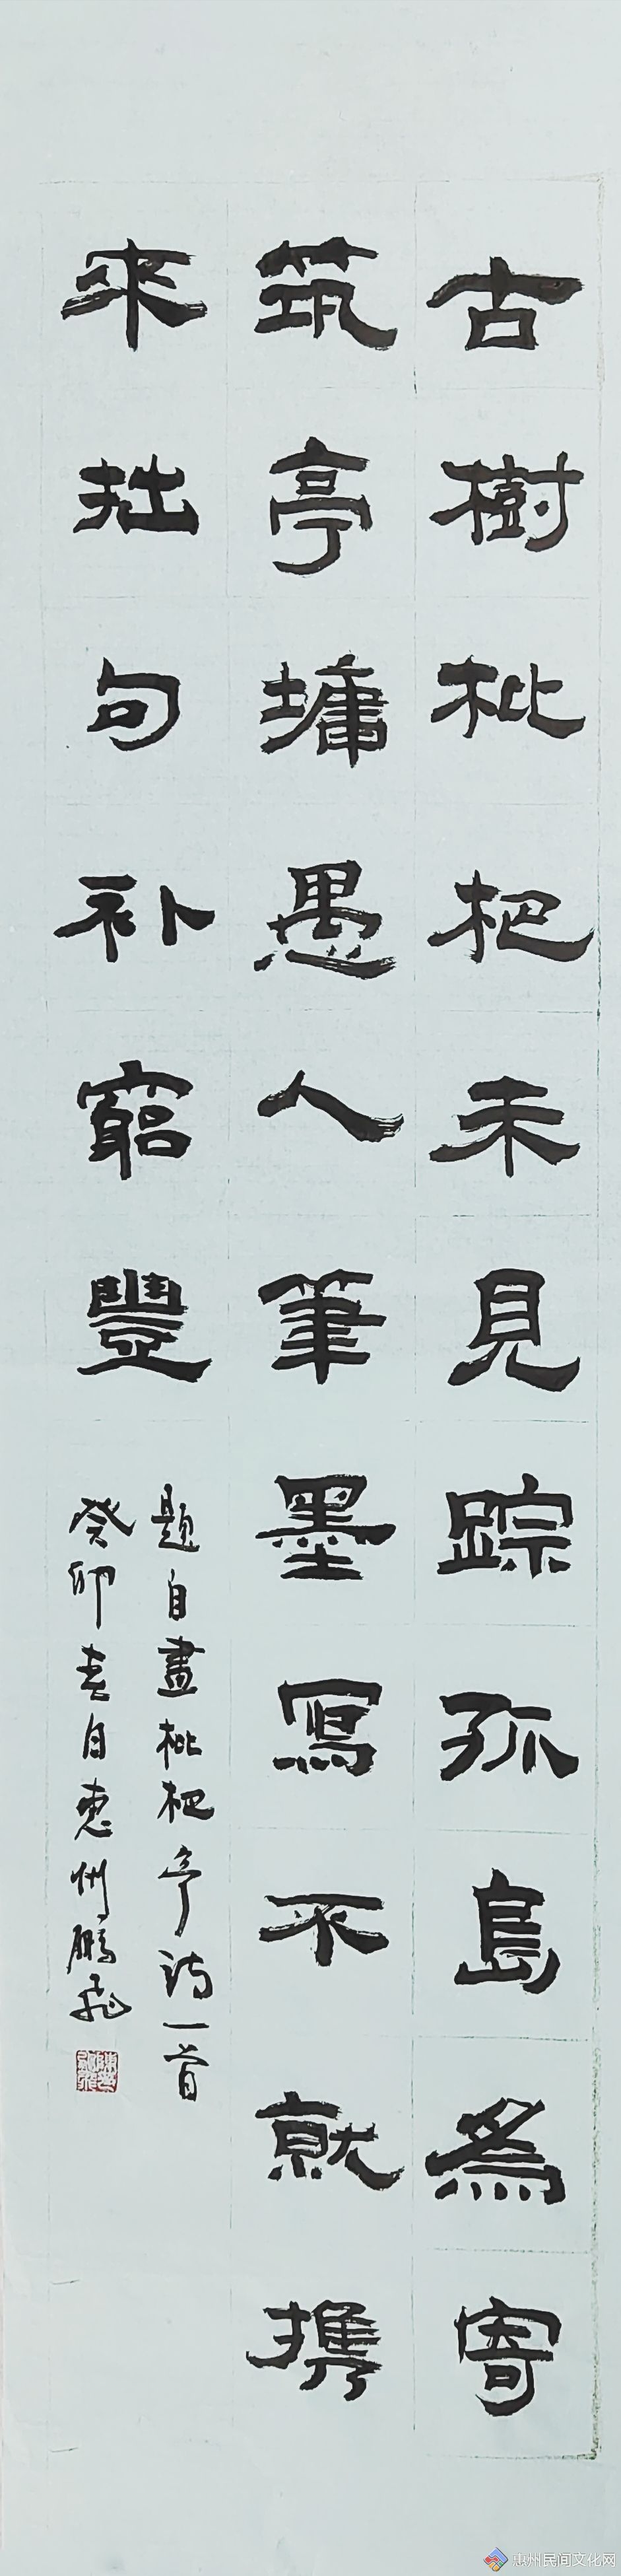 古樹枇杷未見踪孤島為寄
筑亭墉愚人筆墨寫不就携
來拙句补窮豐
題自畫枇杷亭詩一首
癸卯春自惠州鵬飛
惠州民间文化网